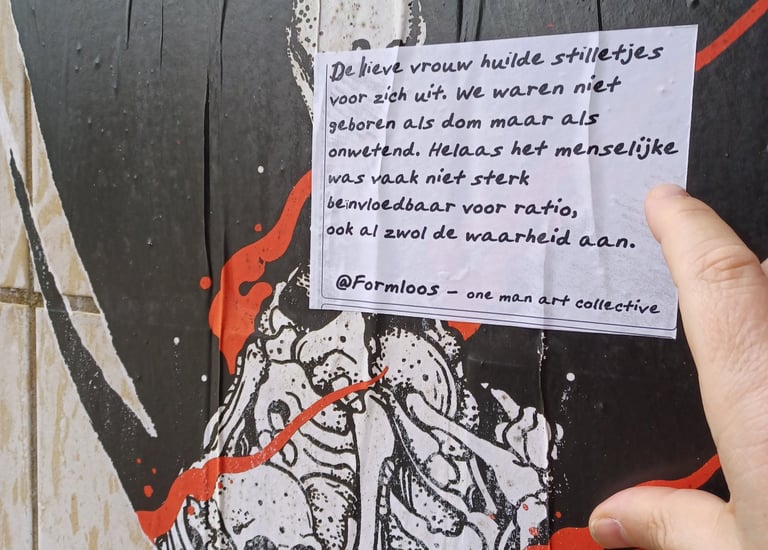 De lieve vrouw huilde stilletjes
voor zich uit. We waren niet
geboren als dom maar als
onwetend. Helaas het menselijke
was vaak niet sterk
beïnvloedbaar voor ratio,
ook al zwol de waarheid aan.
@Formloos - one man art collective